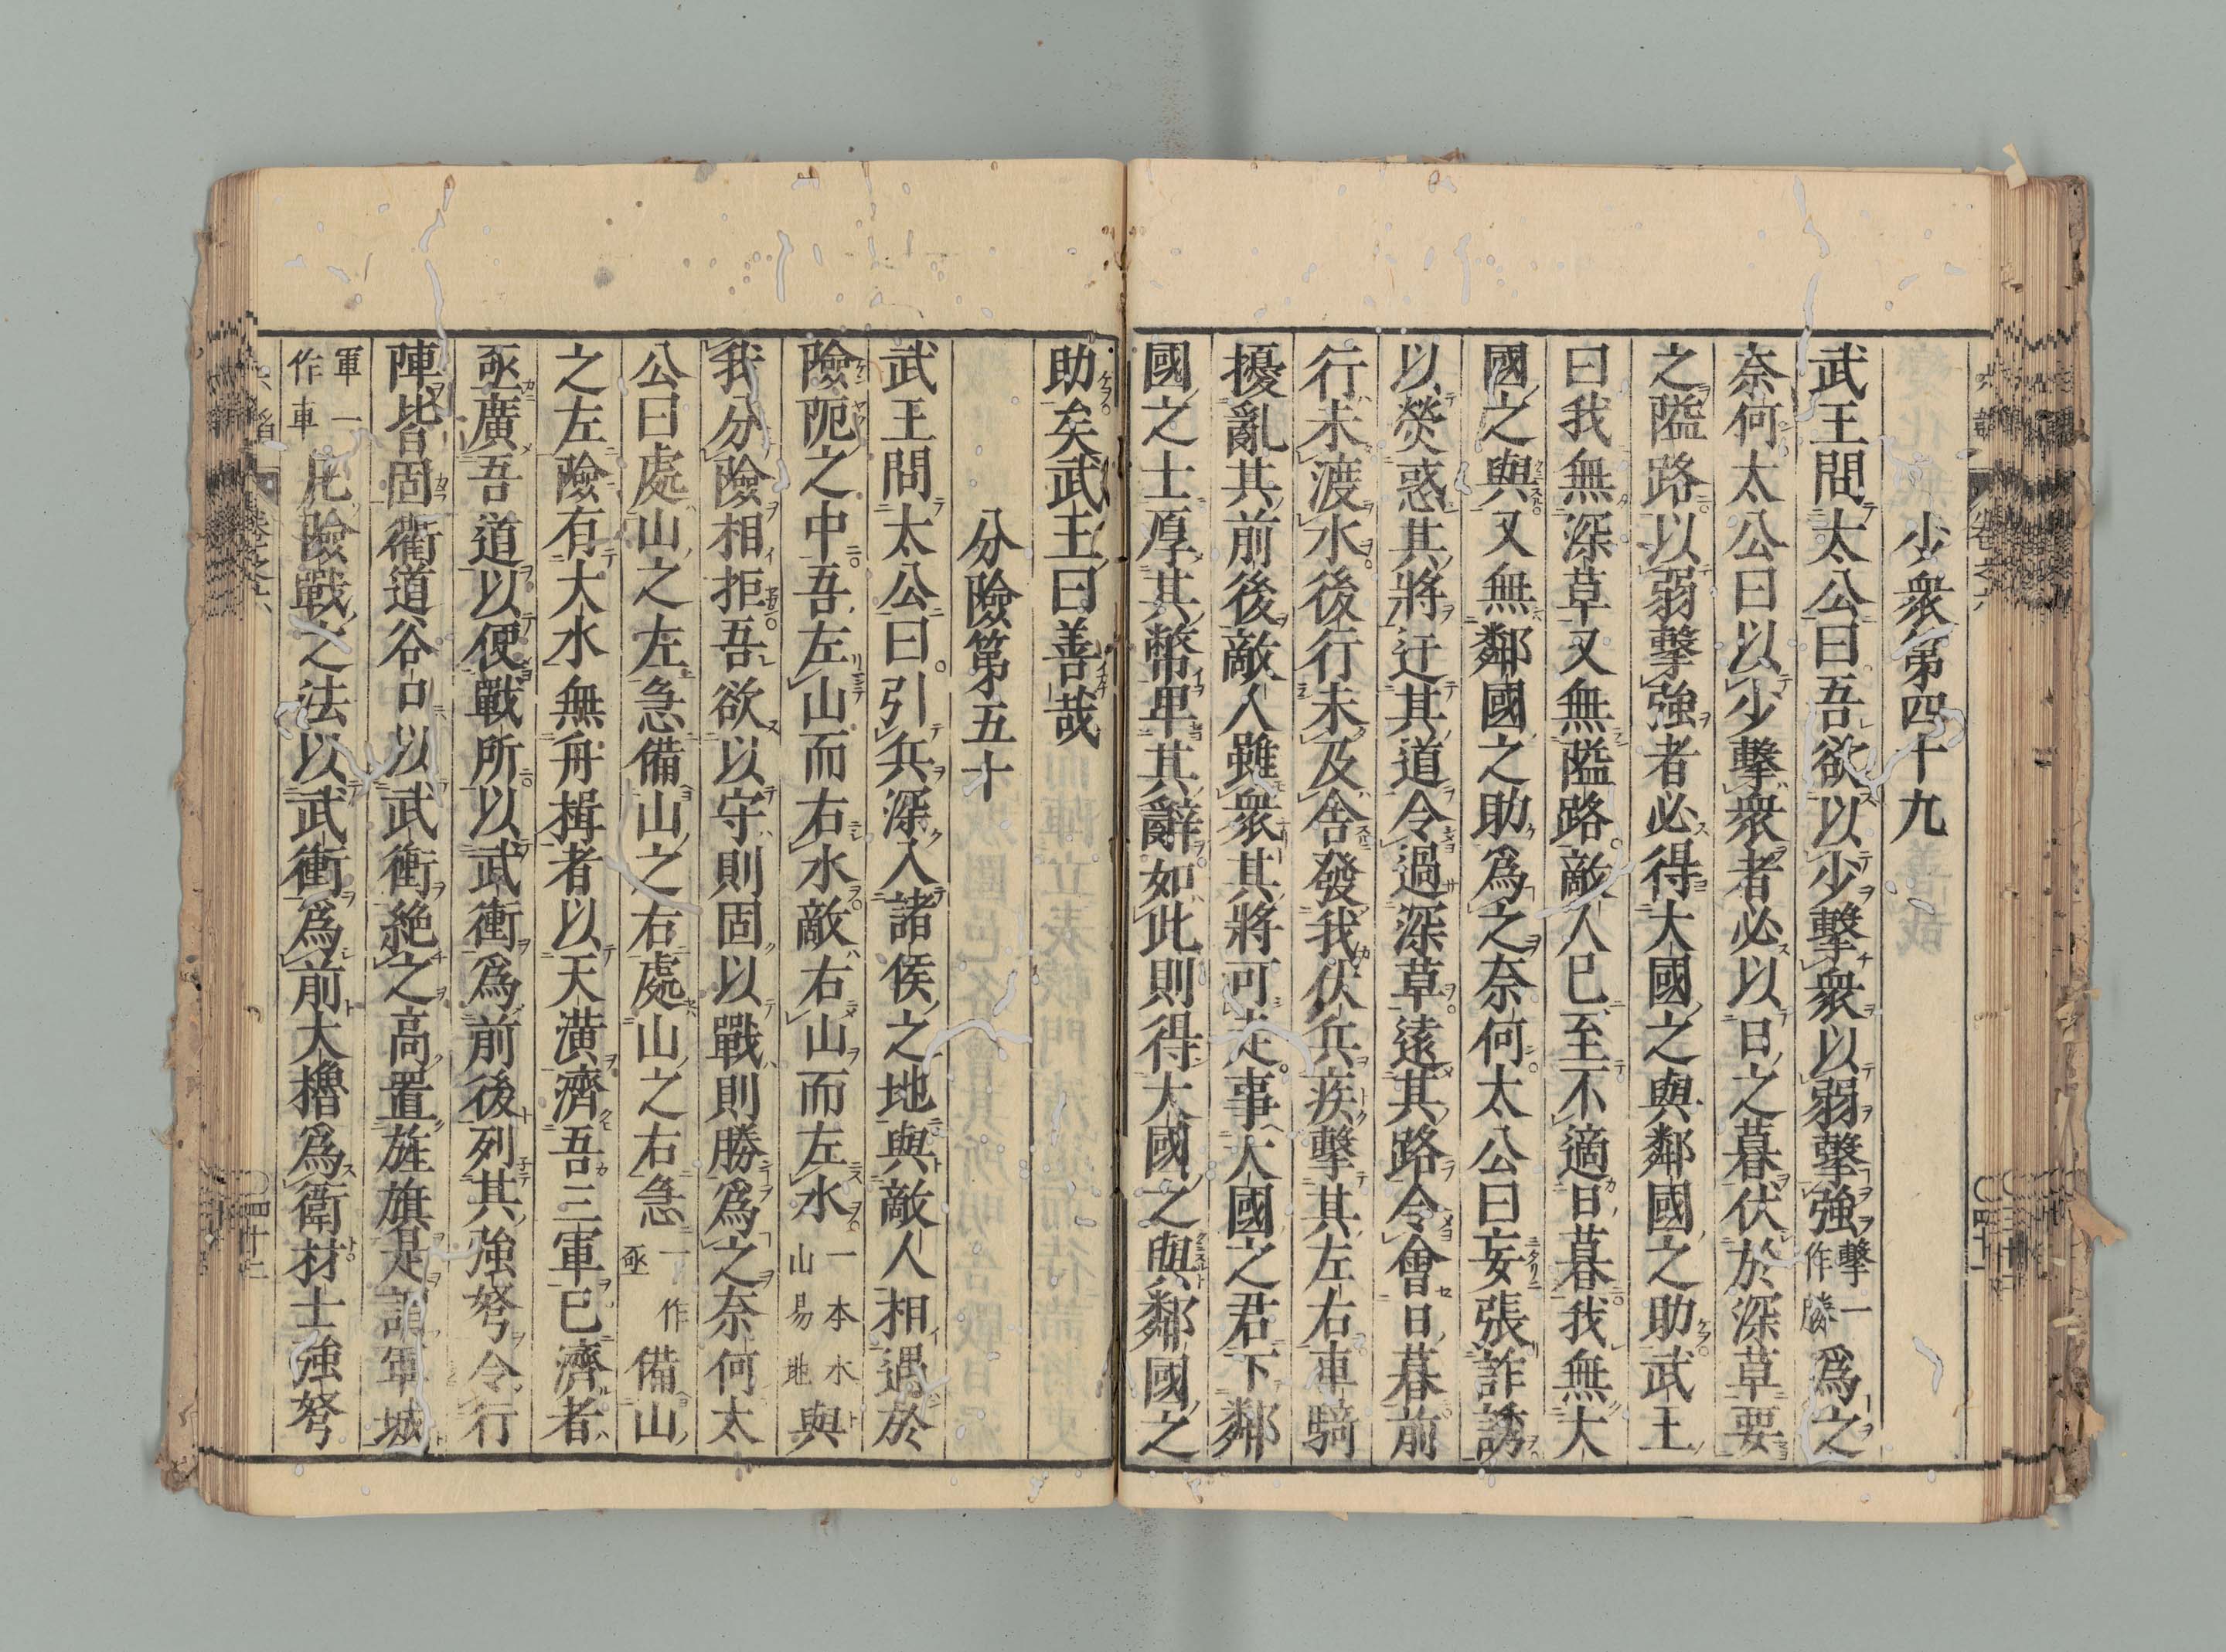 少衆第四十九
武王問太公曰吾欲以少擊衆以弱擊強擊一作勝爲之
奈何太公曰以少擊衆者必以日之暮伏於深草要
之隘路以弱擊強者必得大國之與鄰國之助武王
曰我無深草又無隘路敵人已至不適日暮我無大
國之與又無鄰國之助爲之奈何太公曰妄張詐誘
以熒惑其將迂其道令過深草遠其路令會日暮前
行未渡水後行未及舍發我伏兵疾擊其左右車騎
擾亂其前後敵人雖衆其將可走事大國之君下鄰
國之士厚其幣卑其辭如此則得大國之與鄰國之
助矣武王曰善哉
分險第五十
武王問太公曰引兵深入諸侯之地與敵人相遇於
險阨之中吾左山而右水敵右山而左水一本水山易地與
我分險相拒吾欲以守則固以戰則勝爲之奈何太
公曰處山之左急備山之右處山之右急一作亟備山
之左險有大水無舟楫者以天潢濟吾三軍已濟者
亟廣吾道以便戰所以武衝爲前後列其強弩令行
陣皆固衢道谷口以武衝絶之高置旌旗是謂軍城
軍一作車凡險戰之法以武衝爲前大櫓爲衛材士強弩
六韜 卷之六 四十二